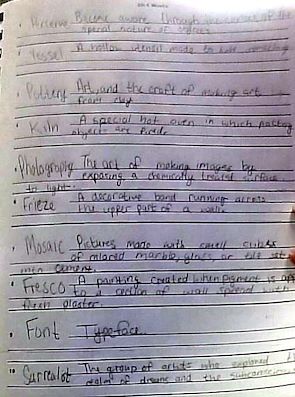 Perceive Become aware through the senses of the
special nature of objects
• Vessel A hollow utensil made to hold something
• Pottery Art, and the craft of making art
from clay
• Kiln A special hot oven in which pottery
objects are fired.
Photography The art of making images by
exposing a chemically treated surface
to light.
• Frieze A decorative band running across
the upper part of a wall.
• Mosaic Pictures made with small cubes
of colored marble, glass, or tile set
in cement.
• Fresco A painting created when pigment is
to a section of wall spread with
fresh plaster.
• Font Typeface.
Surrealist The group of artists who explored
realm of dreams and the subconscious